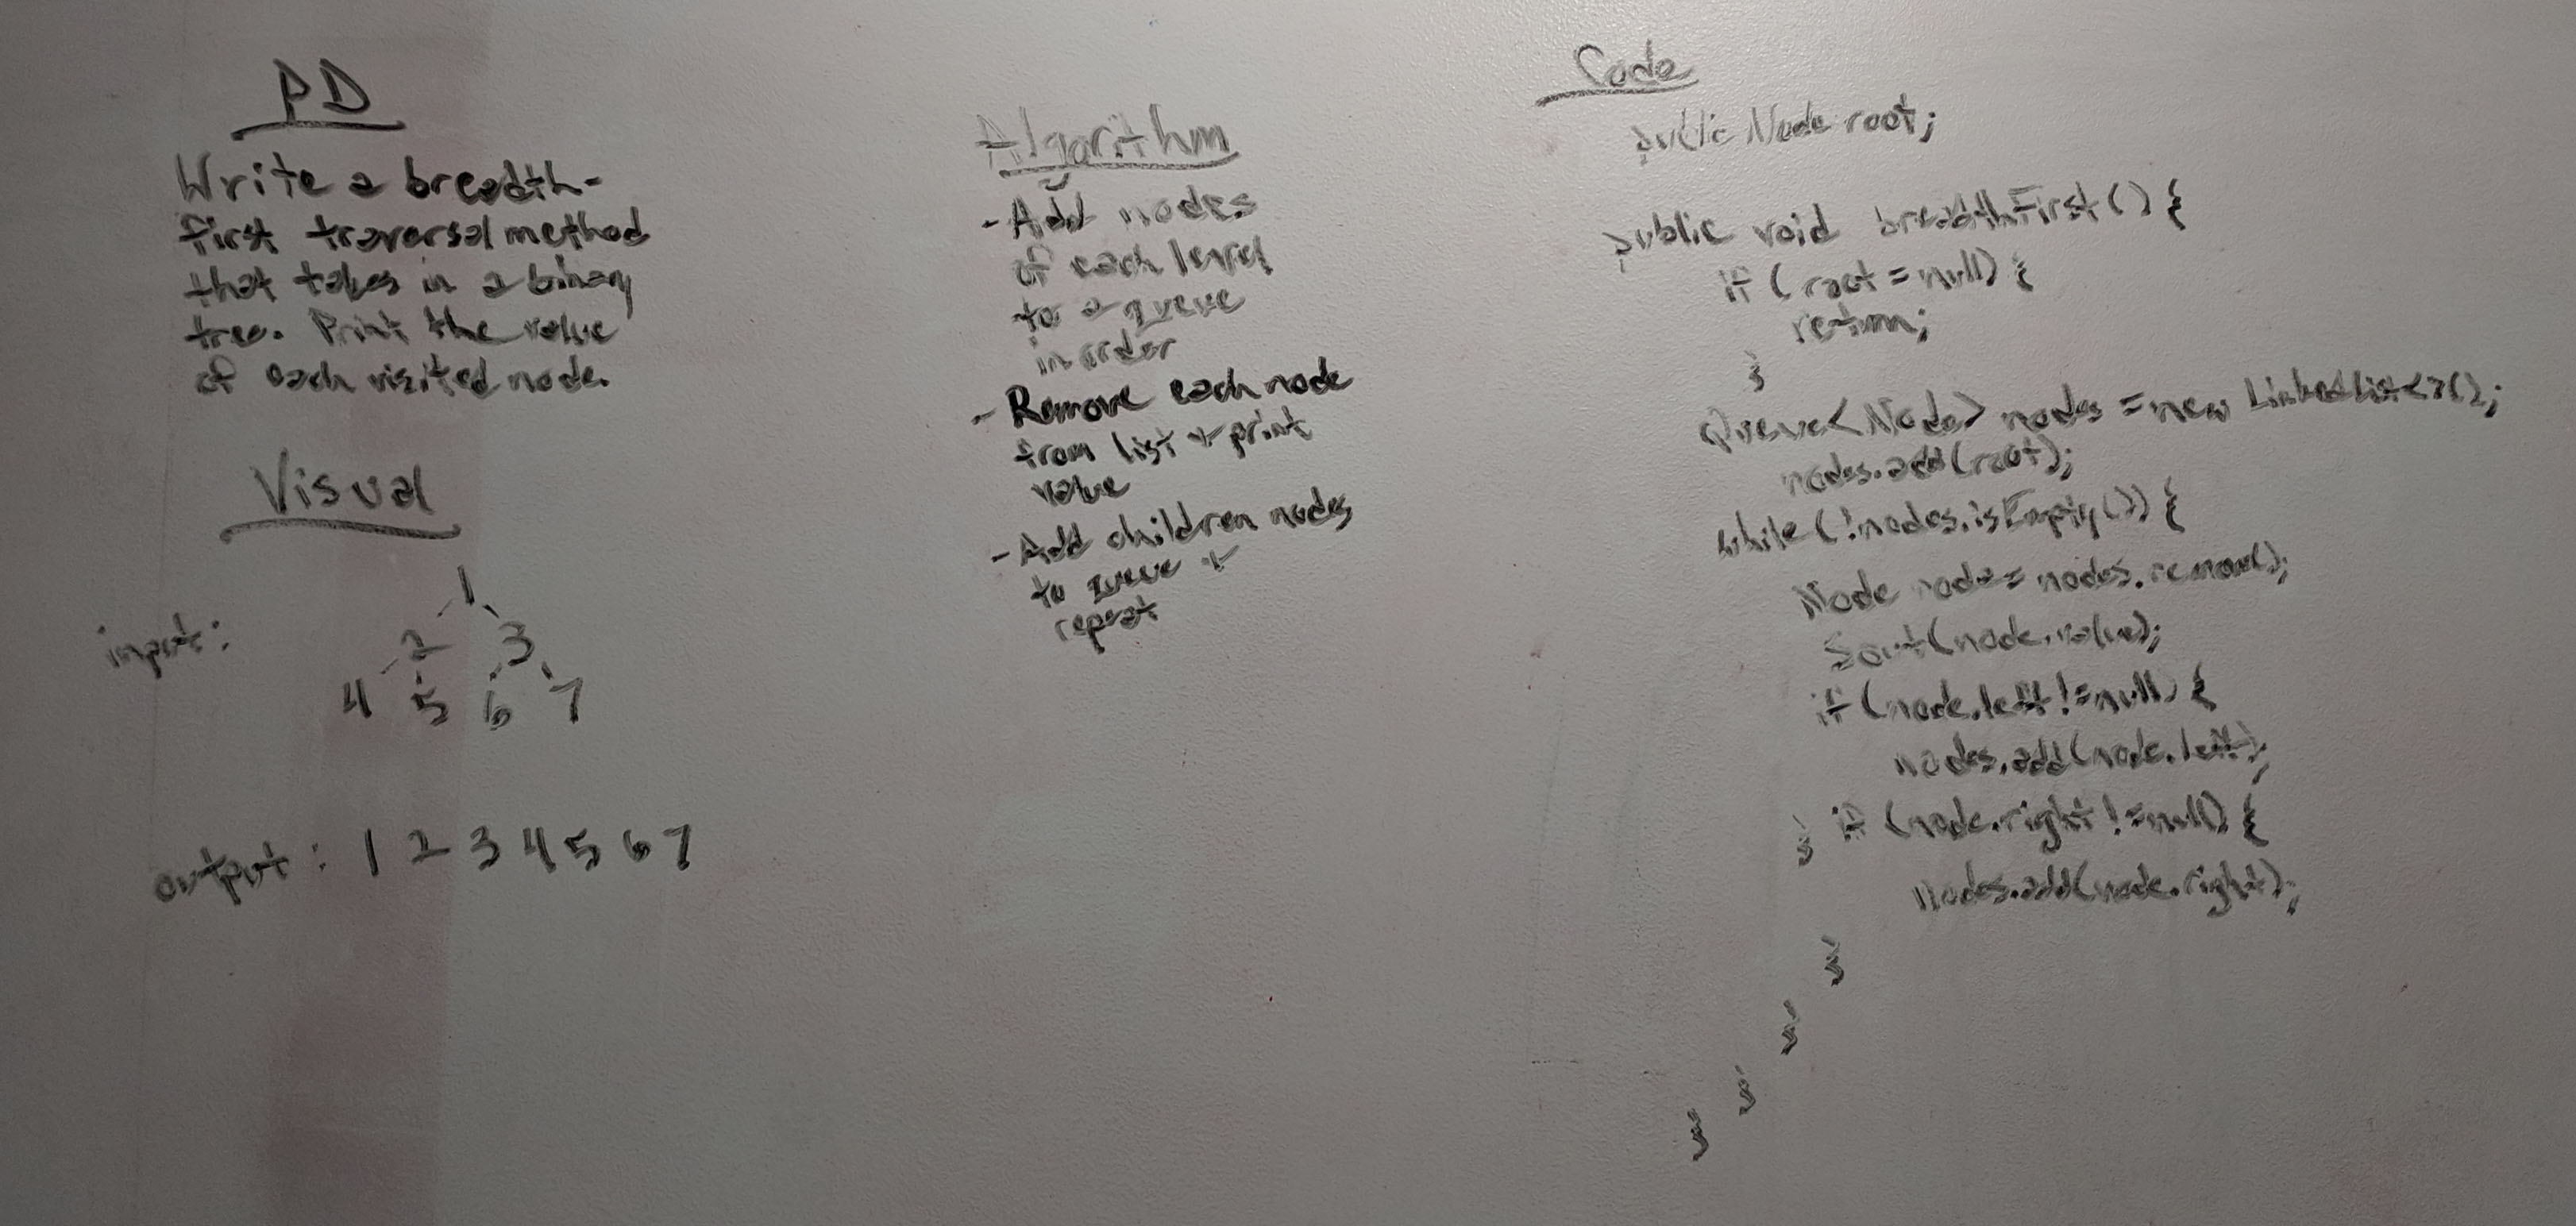 PD
Write a breadth-
first traversal method
that takes in a binary
tree. Print the value
of each visited node.
Visual
input:
1
2 3
4 5 6 7
output: 1 2 3 4 5 6 7
Algorithm
- Add nodes
of each level
to a queue
in order
- Remove each node
from list + print
value
- Add children nodes
to queue +
repeat
Code
public Node root;
public void breadthFirst() {
if (root = null) {
return;
}
Queue<Node> nodes = new LinkedList<>();
nodes.add(root);
while (!nodes.isEmpty()) {
Node node = nodes.remove();
Sout(node.value);
if (node.left != null) {
nodes.add(node.left);
} if (node.right != null) {
nodes.add(node.right);
}
}
}
}